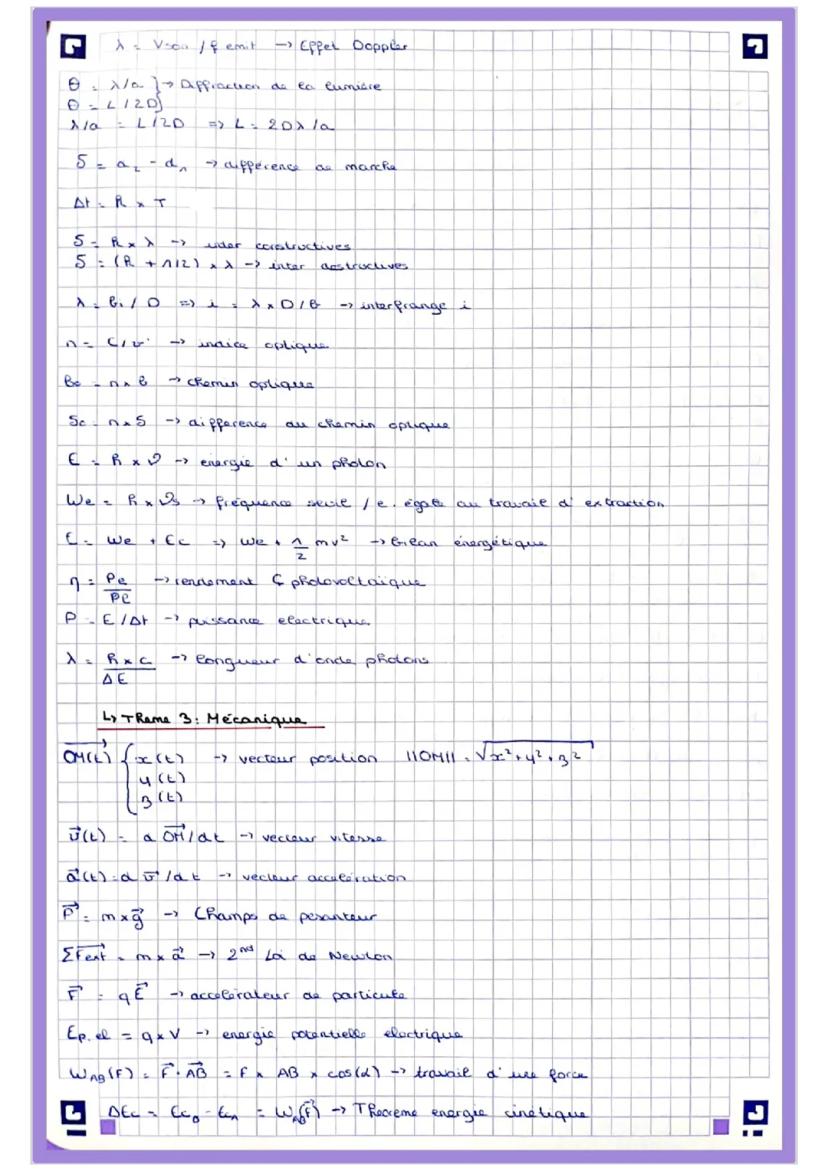 λ = Vson / f emit → Effet Doppler
θ = λ/a } → Diffraction de la lumière
θ = L/2D
λ/a = L/2D => L = 2Dλ/a
δ = d₂ - d₁ → différence de marche
Δt = k x T
δ = k x λ → inter constructives
δ = (k + 1/2) x λ → inter destructives
λ = bi / D => i = λ x D/b → interfrange i
n = C/v → indice optique
lc = n x l → chemin optique
δc = n x δ → difference du chemin optique
E = h x ν → energie d'un photon
We = h x νs → fréquence seuil / e. égale au travail d'extraction
E = We + Ec => We + 1/2 mv² → bilan énergétique
η = Pe/Pl → rendement ç photovoltaïque
P = E/Δt → puissance electrique
λ = h x c / ΔE → longueur d'onde photons
↳ Thème 3 : Mécanique
OM(t) { x(t) → vecteur position ||OM|| = √x² + y² + z²
y(t)
z(t)
v(t) = d OM/dt → vecteur vitesse
a(t) = d v/dt → vecteur accélération
P = m x g → Champs de pesanteur
ΣFext = m x a → 2nd Loi de Newton
F = qE → accelérateur de particule
Ep.el = q x V → energie potentielle electrique
WAB(F) = F . AB = F x AB x cos(α) → travail d'une force
ΔEc = EcB - EcA = WAB(F) → Theoreme energie cinétique